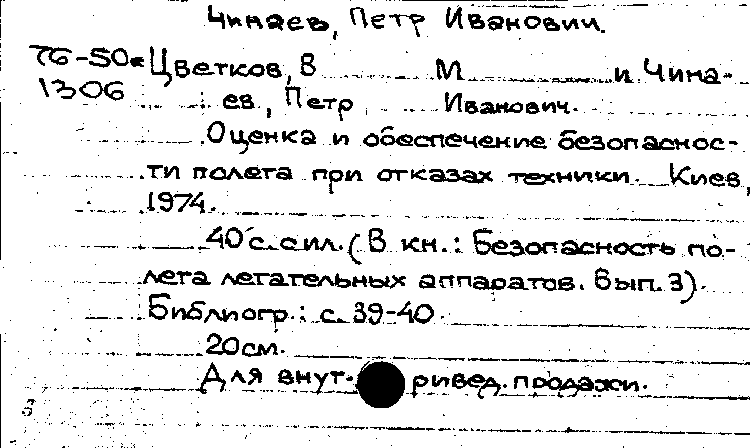 Чинаев, Петр Иванович.
76-50к Цветков, В М и Чина-
1306 ев, Петр Иванович.
Оценка и обеспечение безопаснос-
ти полета при отказах техники. Киев,
1974.
40 с. с ил. (В кн.: Безопасность по-
лета летательных аппаратов. Вып. 3).
Библиогр.: с. 39-40.
20см.
Для внут. продажи.